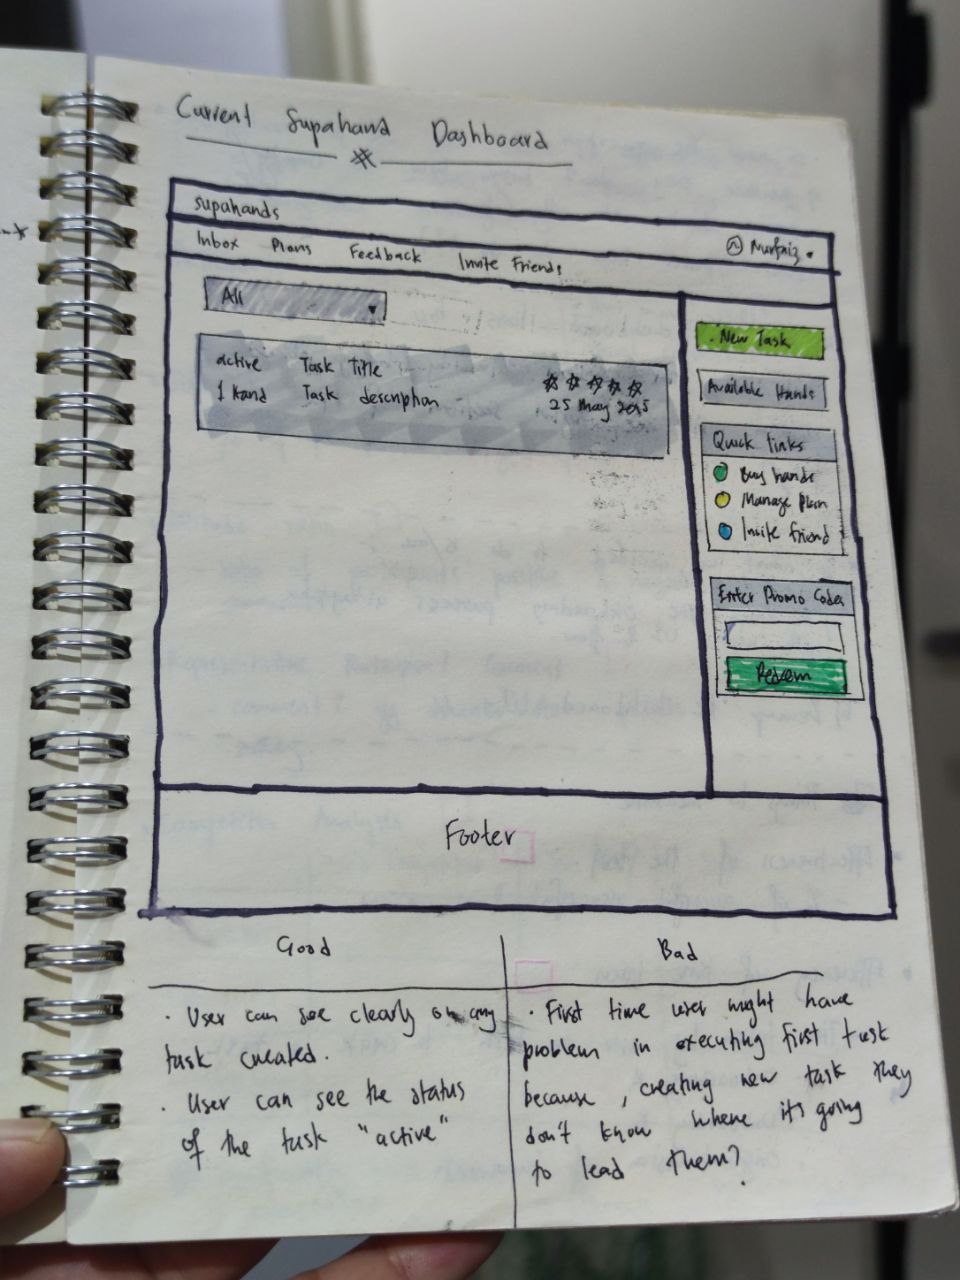 Current Supahand Dashboard
supahands
Inbox Plans Feedback Invite Friends Nurfaiz
All
active Task Title
1 Hand Task description
25 May 2015
New Task
Available Hands
Quick Links
Buy hands
Manage Plan
Invite friend
Enter Promo Codes
Redeem
Footer
Good
· User can see clearly any
task created.
· User can see the status
of the task "active"
Bad
· First time user might have
problem in executing first task
because, creating new task they
don't know where it's going
to lead them?